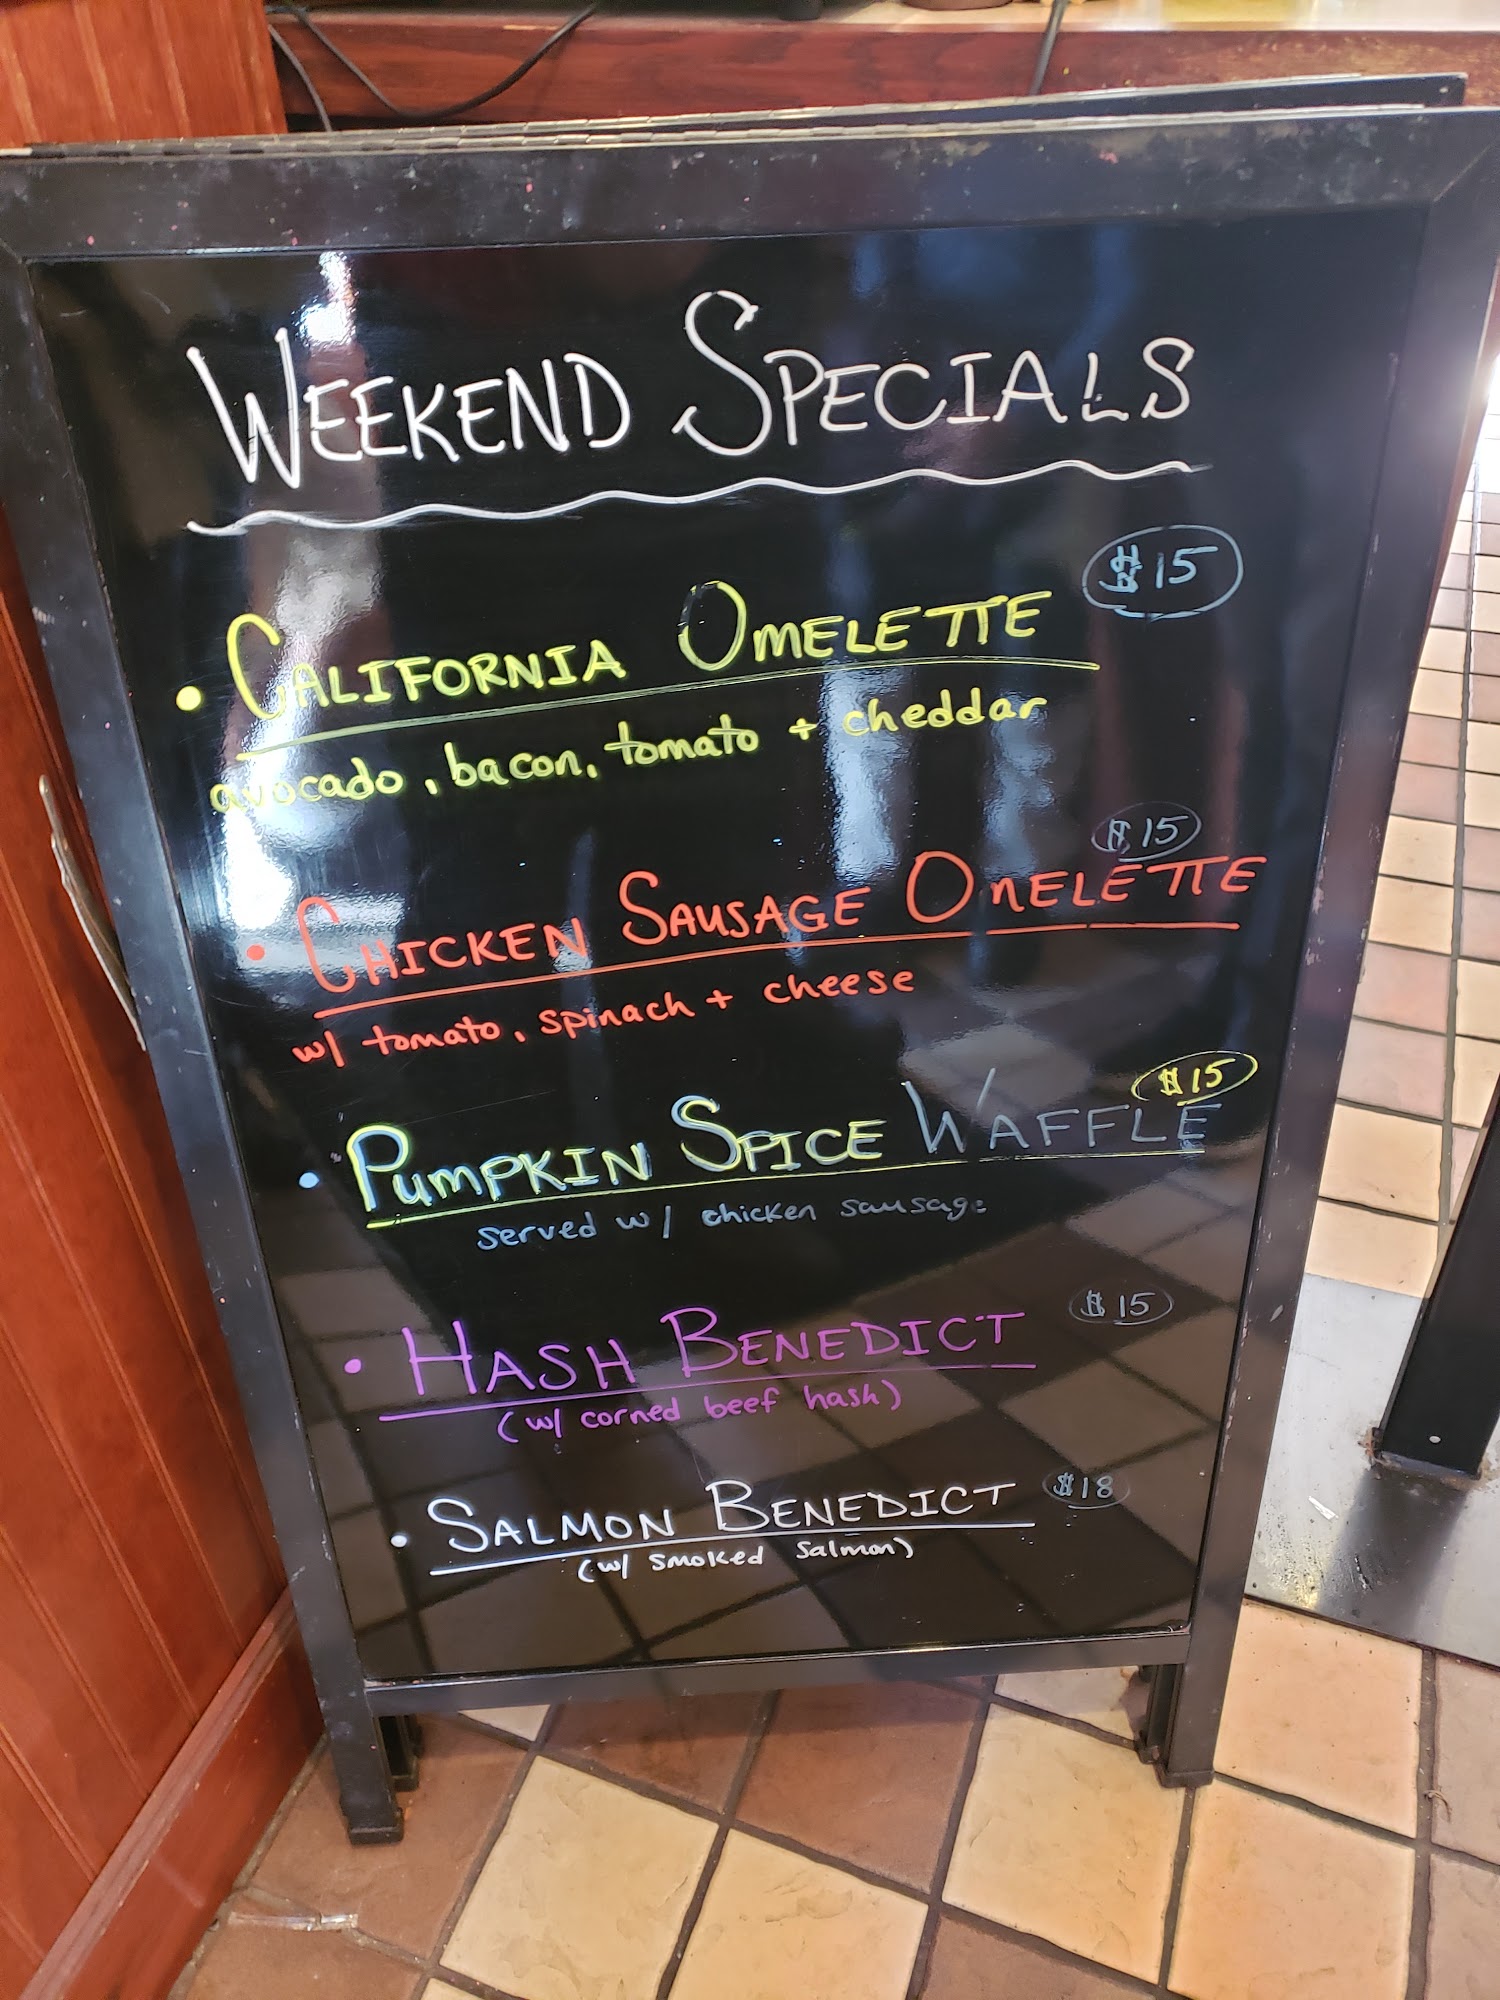 WEEKEND SPECIALS
$15
• CALIFORNIA OMELETTE
avocado, bacon, tomato + cheddar
$15
• CHICKEN SAUSAGE OMELETTE
w/ tomato, spinach + cheese
$15
• PUMPKIN SPICE WAFFLE
served w/ chicken sausage
• HASH BENEDICT $15
(w/ corned beef hash)
• SALMON BENEDICT $18
(w/ smoked salmon)